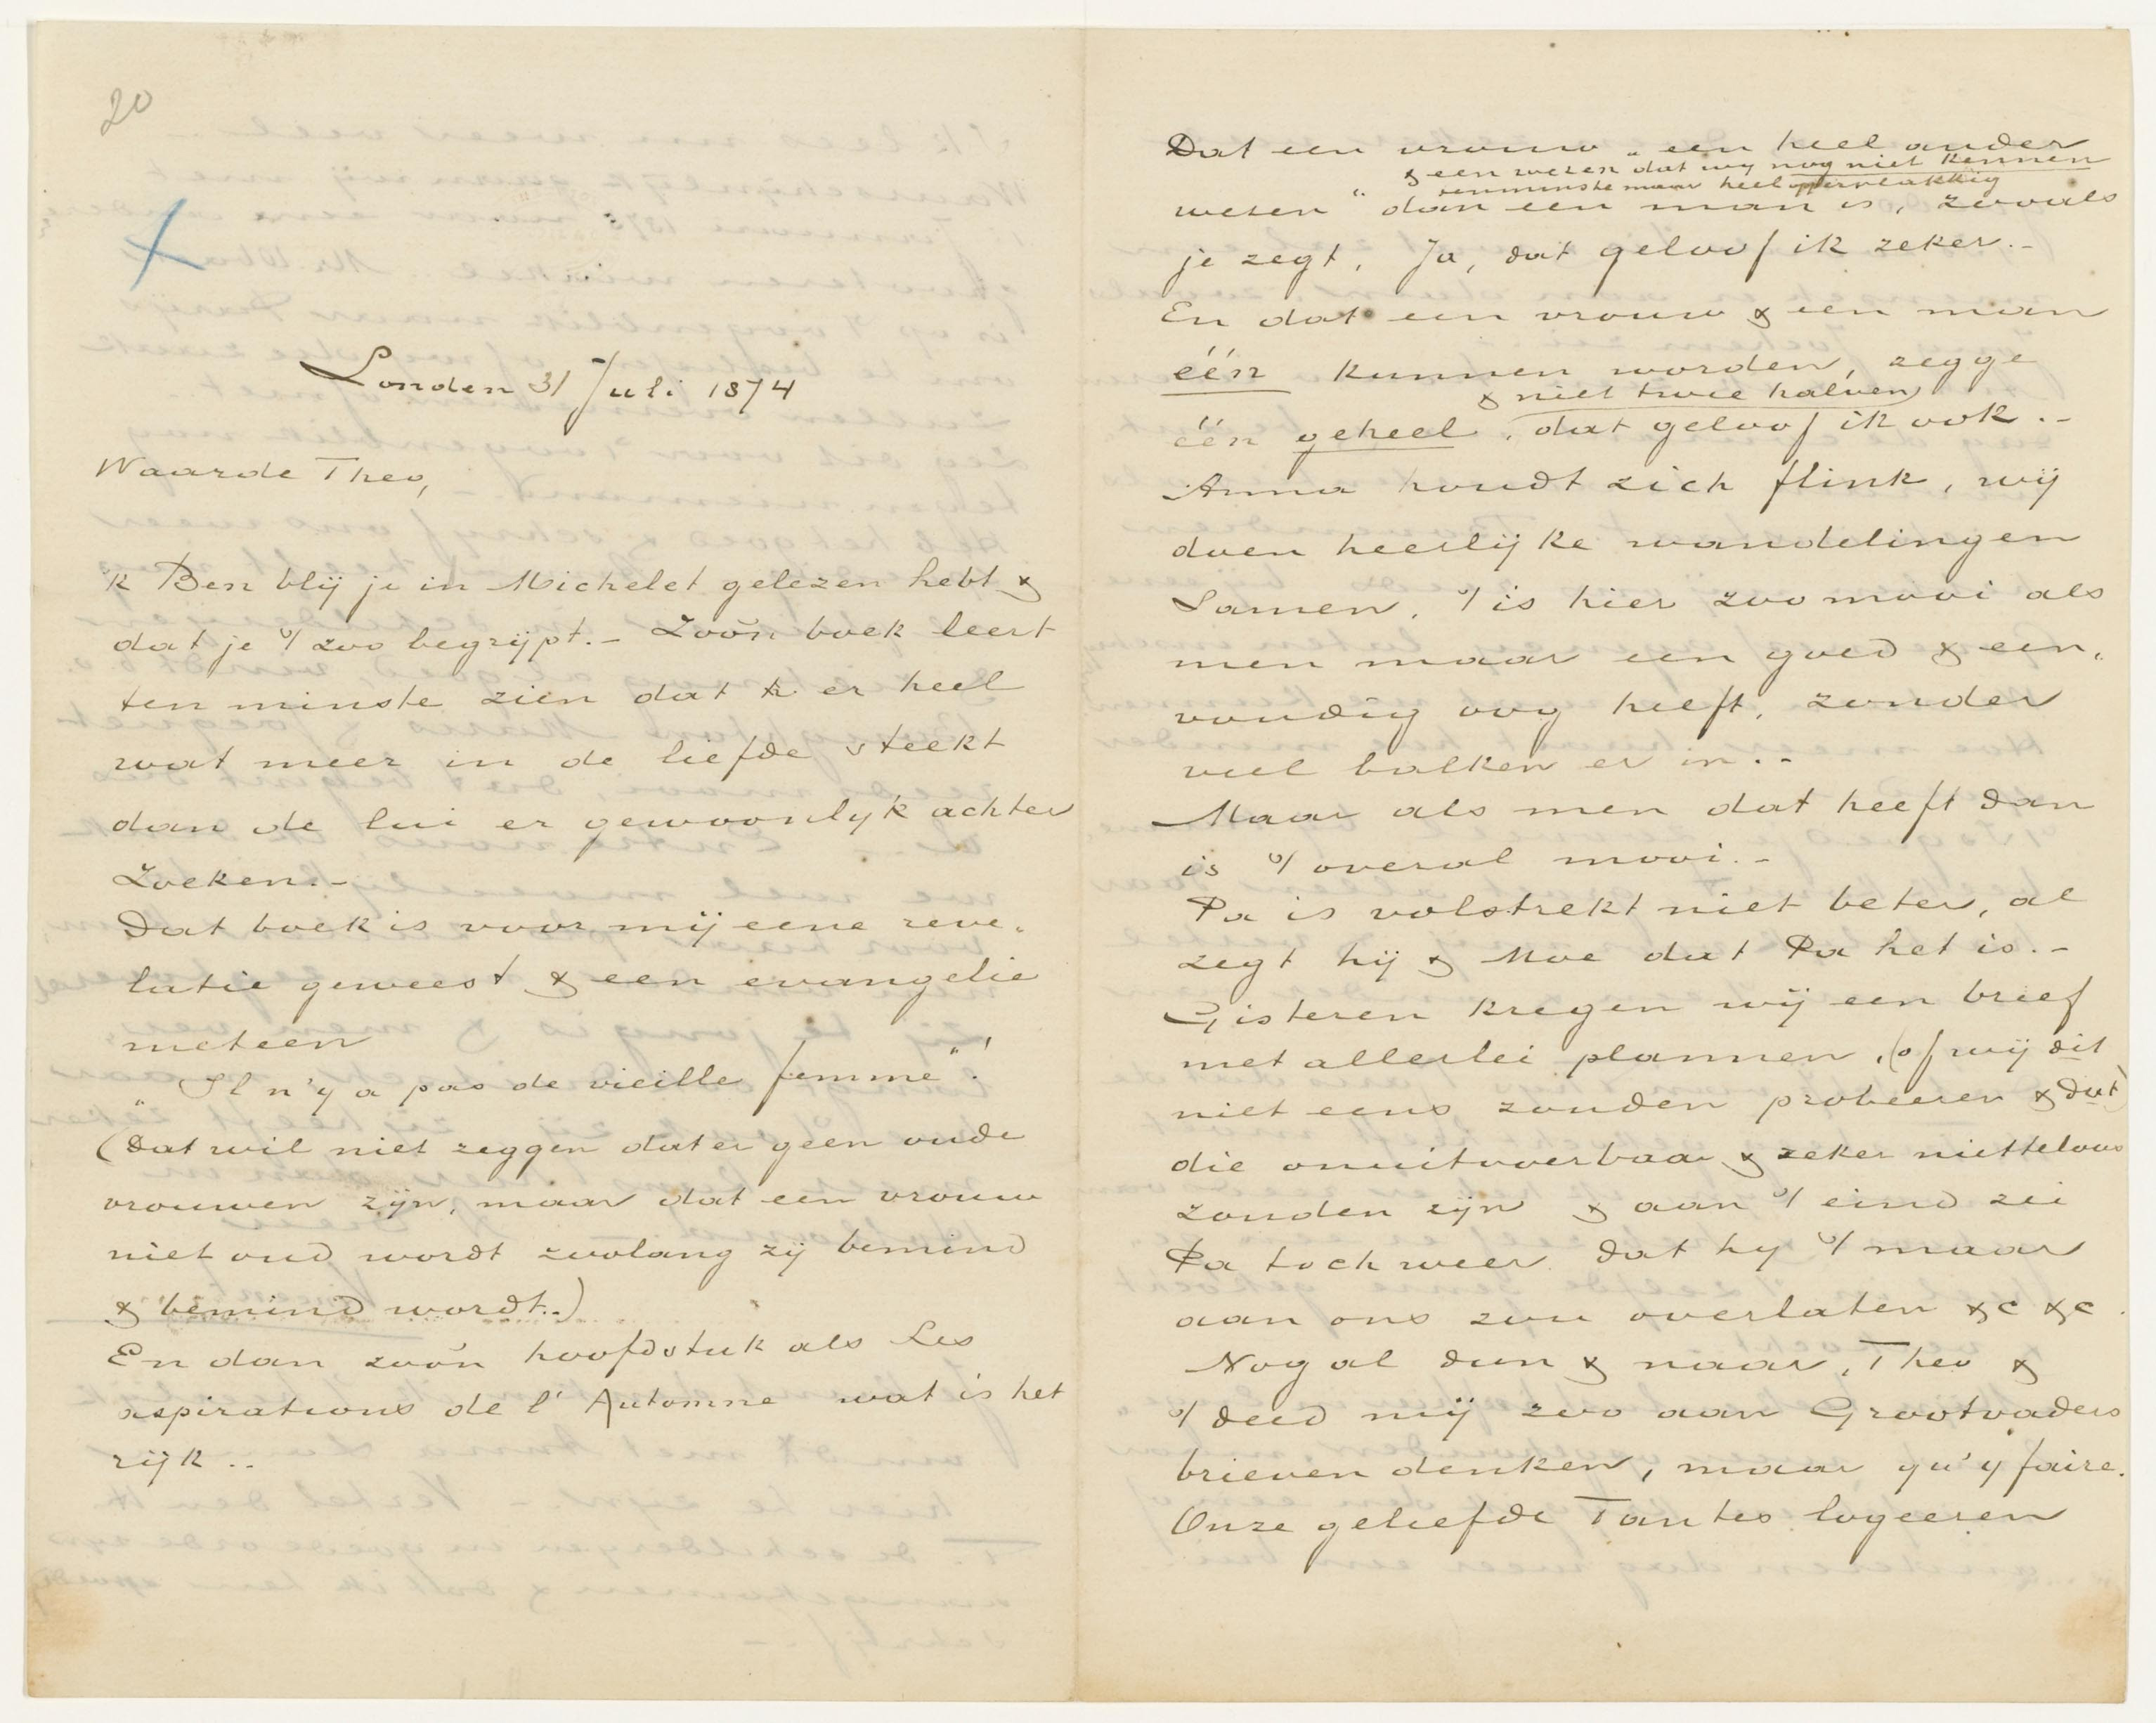 20
Londen 31 Juli 1874
Waarde Theo,
'k Ben blij je in Michelet gelezen hebt &
dat je 't zoo begrijpt.- Zoo'n boek leert
ten minste zien dat er heel
wat meer in de liefde steekt
dan de lui er gewoonlyk achter
zoeken.-
Dat boek is voor mij eene reve„
latie geweest & een evangelie
meteen
„Il n'y a pas de vieille femme"!
(Dat wil niet zeggen dat er geen oude
vrouwen zijn, maar dat een vrouw
niet oud wordt zoolang zij bemind
& bemind wordt..)
En dan zoo'n hoofdstuk als Les
aspirations de l'Automne wat is het
rijk..
Dat een vrouw „een heel ander
& een wezen dat wy nog niet kennen
tenminste maar heel oppervlakkig
wesen" dan een man is, zooals
je zegt, Ja, dat geloof ik zeker.-
En dat een vrouw & een man
één kunnen worden, zegge
& niet twee halven
één geheel, dat geloof ik ook.-
Anna houdt zich flink, wij
doen heerlijke wandelingen
samen. 't is hier zoo mooi als
men maar een goed & een„
voudig oog heeft, zonder
veel balken er in.-
Maar als men dat heeft dan
is 't overal mooi.-
Pa is volstrekt niet beter, al
zegt hij & Moe dat Pa het is.-
Gisteren kregen wij een brief
met allerlei plannen, (of wij dit
niet eens zouden probeeren & dat)
die onuitvoerbaar & zeker nietteloos
zouden zijn & aan 't eind zei
Pa toch weer dat hy 't maar
aan ons zou overlaten &c &c.
Nog al dun & naar, Theo &
't deed mij zoo aan Grootvaders
brieven denken, maar qu'y faire.
Onze geliefde Tantes logeeren